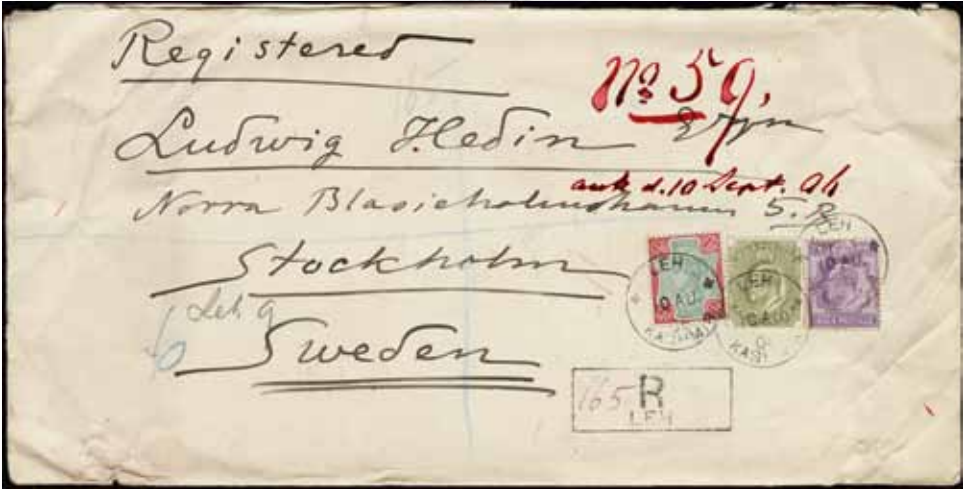 Registered
No 59.
Ludwig Hedin
ank d. 10 Sept. 06
Norra Blasieholmshamnen 5. B
Stockholm
Leh 9
Sweden
LEH
10 AU.
LEH
10 AU.
LEH
10 AU.
165 R
LEH